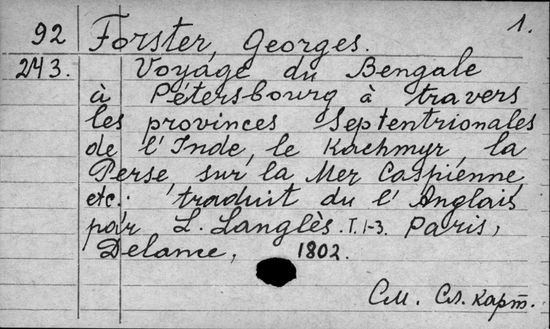 1.
92 Forster, Georges.
243. Voyage du Bengale
à Pétersbourg à travers
les provinces Septentrionales
de l'Inde, le Kachmyr, la
Perse, sur la Mer Caspienne,
etc. traduit du l'Anglais
par L. Langlès. T. 1-3. Paris,
Delance, 1802.
См. Сл. карт.